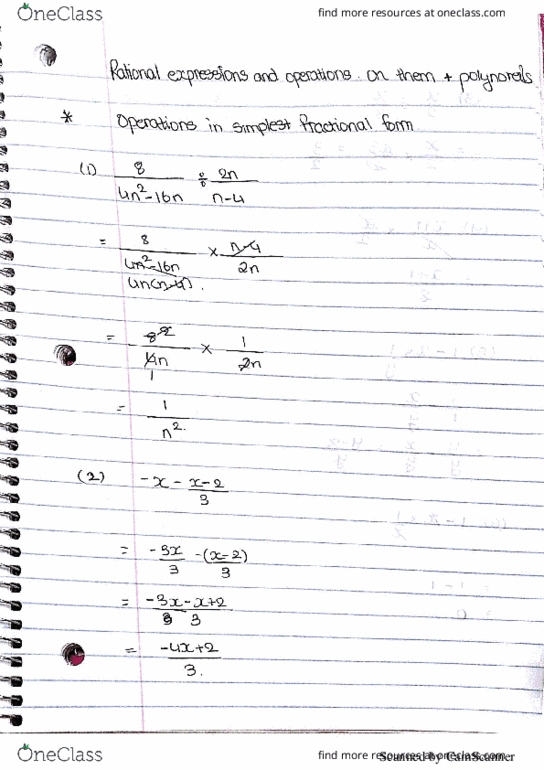 OneClass
find more resources at oneclass.com
Rational expressions and operations. on them + polynomials
* Operations in simplest fractional form
(1) 8/(4n²-16n) ÷ 2n/(n-4)
= 8/(4n²-16n) × (n-4)/2n
4n(n-4).
= 8 2/4n × 1/2n
1
= 1/n².
(2) -x - (x-2)/3
= -3x/3 -(x-2)/3
= (-3x-x+2)/3 3
= (-4x+2)/3.
OneClass
find more resources at oneclass.com
Scanned by CamScanner